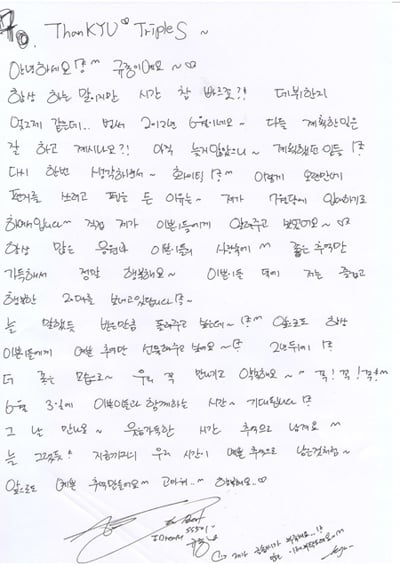 To. ThanKYU♡ TripleS ~
안녕하세요!? ^^ 규종이에요 ~♡
항상 하는 말이지만 시간 참 빠르죠?! 데뷔한지
엊그제 같은데.. 벌써 2012년 6월이네요~ 다들 계획한일은
잘 하고 계시나요?! 아직 늦지않았으니~ 계획했던 일들 !?
다시 한번 생각하면서~ 화이팅 !? ^^ 이렇게 오랜만에
편지를 쓰려고 펜을 든 이유는~ 제가 7월달에 입대하기로
해서입니다~ 직접 제가 이쁜이들에게 알려주고 싶었어요~♡
항상 많은 응원과 이쁜이들의 사랑속에 ^^ 좋은 추억만
가득해서 정말 행복해요~ 이쁜이들 덕에 저는 즐겁고
행복한 20대를 보내고있답니다!?~
늘 말했듯 받은만큼 돌려주고 싶은데~ !? ^^ 앞으로도 항상
이쁜이들에게 예쁜 추억만 선물해주고 싶어요 ~!? 2년뒤에 !?
더 좋은 모습으로~ 우리 꼭 만나기로 약속해요~ ^^ 꼭!꼭!꼭! ^^
6월 3일에 이쁜이들과 함께하는 시간~ 기대됩니다 !?
그 날 만나요~ 웃음가득한 시간 추억으로 남겨요 ^^
늘 그랬듯 ^^ 지금까지의 우리 시간이 예쁜 추억으로 남은것처럼~
앞으로도 예쁜 추억만들어요 ^^ 고마워.. ^^ 사랑해요..♡
SS501
규종